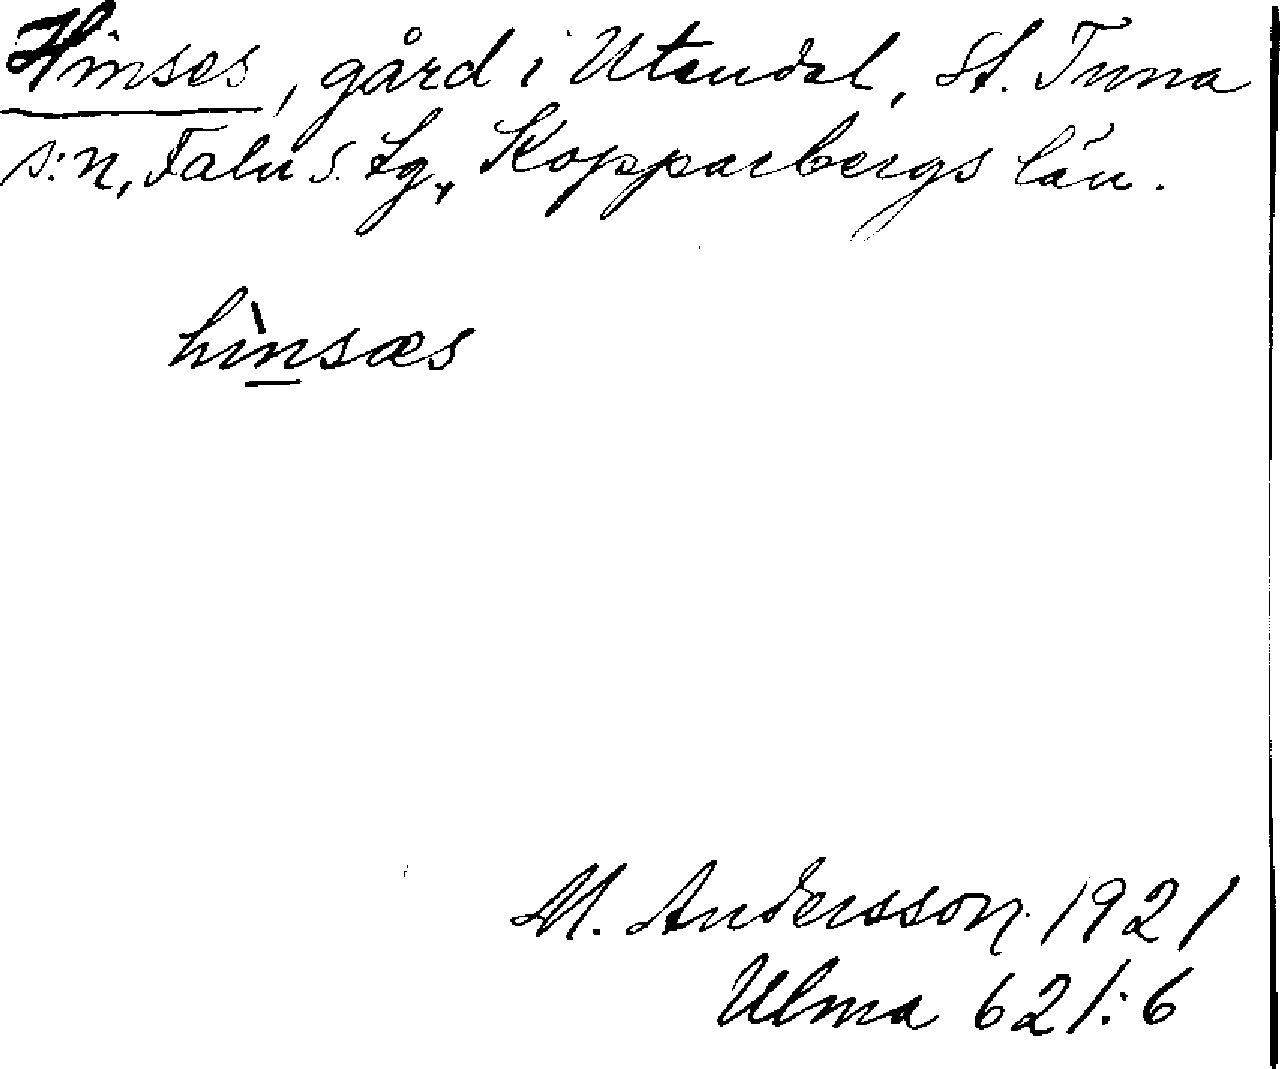 Hinses, gård i Utendal, St. Tuna
s:n, Falu s. tg., Kopparbergs län.
hìnsæs
M. Andersson 1921
Ulma 621:6